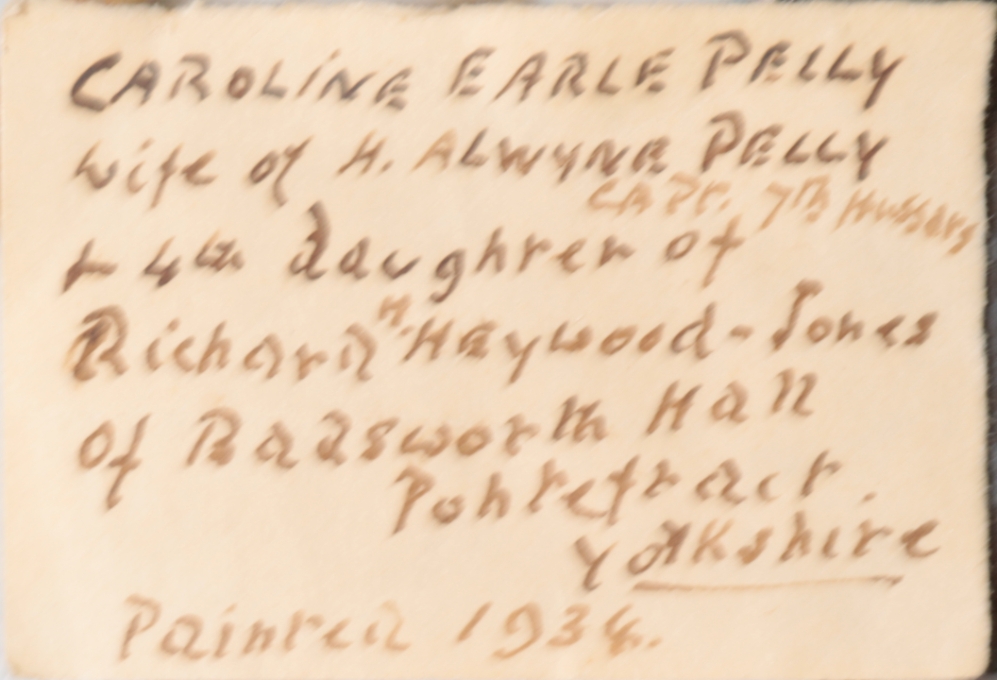 CAROLINE EARLE PELLY
wife of H. ALWYNE PELLY
CAPT. 7th Hussars
+ 4th daughter of
Richard H. Haywood-Jones
of Badsworth Hall
Pontefract.
Yorkshire
Painted 1934.